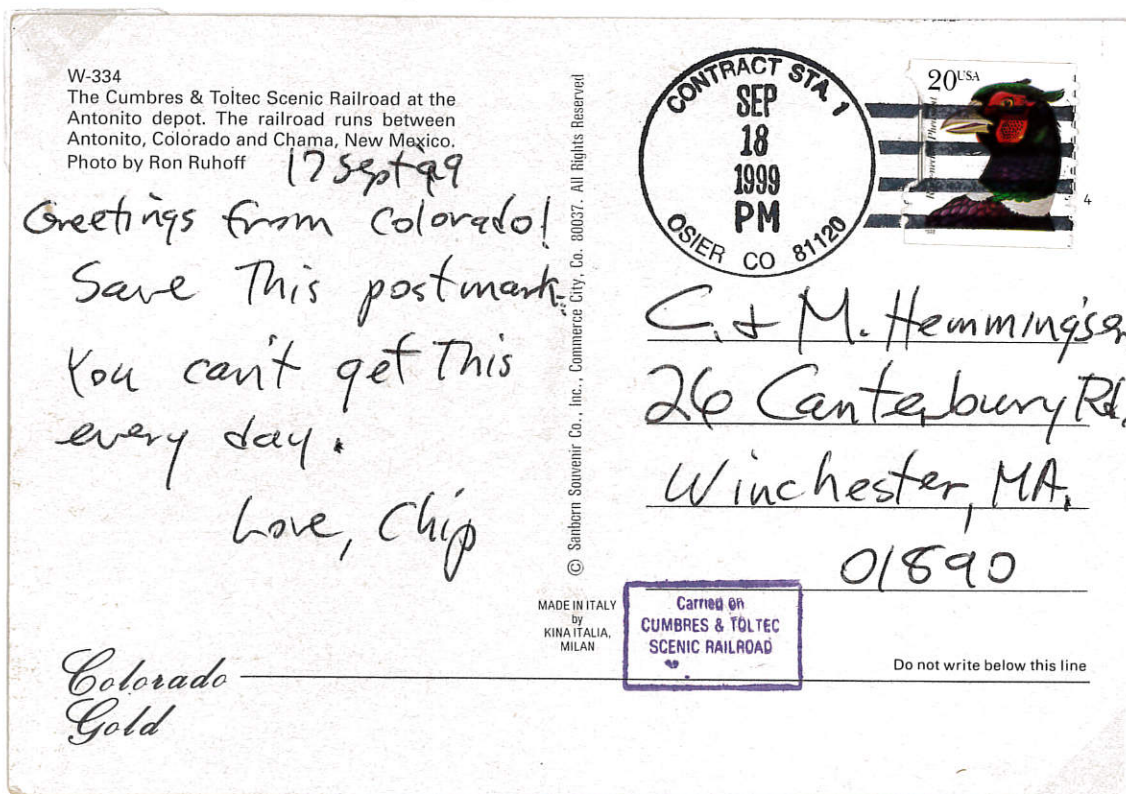 W-334
The Cumbres & Toltec Scenic Railroad at the
Antonito depot. The railroad runs between
Antonito, Colorado and Chama, New Mexico.
Photo by Ron Ruhoff
17 Sept 99
Greetings from Colorado!
Save This postmark.
You can't get This
every day.
Love, Chip
Colorado
Gold
© Sanborn Souvenir Co., Inc., Commerce City, Co. 80037. All Rights Reserved
MADE IN ITALY
by
KINA ITALIA,
MILAN
CONTRACT STA. 1
SEP
18
1999
PM
OSIER CO 81120
20 USA
4
C. & M. Hemmingsen
26 Canterbury Rd.
Winchester, MA.
01890
Carried on
CUMBRES & TOLTEC
SCENIC RAILROAD
Do not write below this line